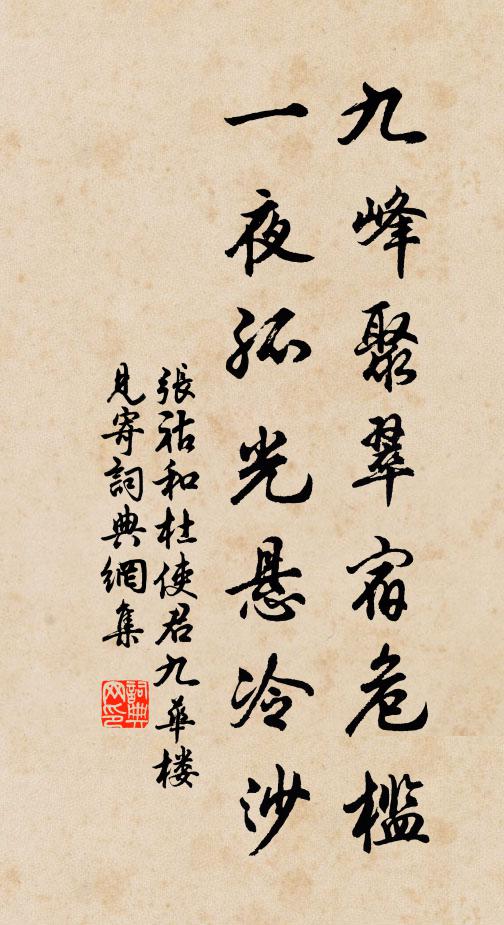 九峰聚翠宿危檻
一夜孤光悬冷沙
張祜和杜使君九華楼
見寄詞典網集
詞典网印